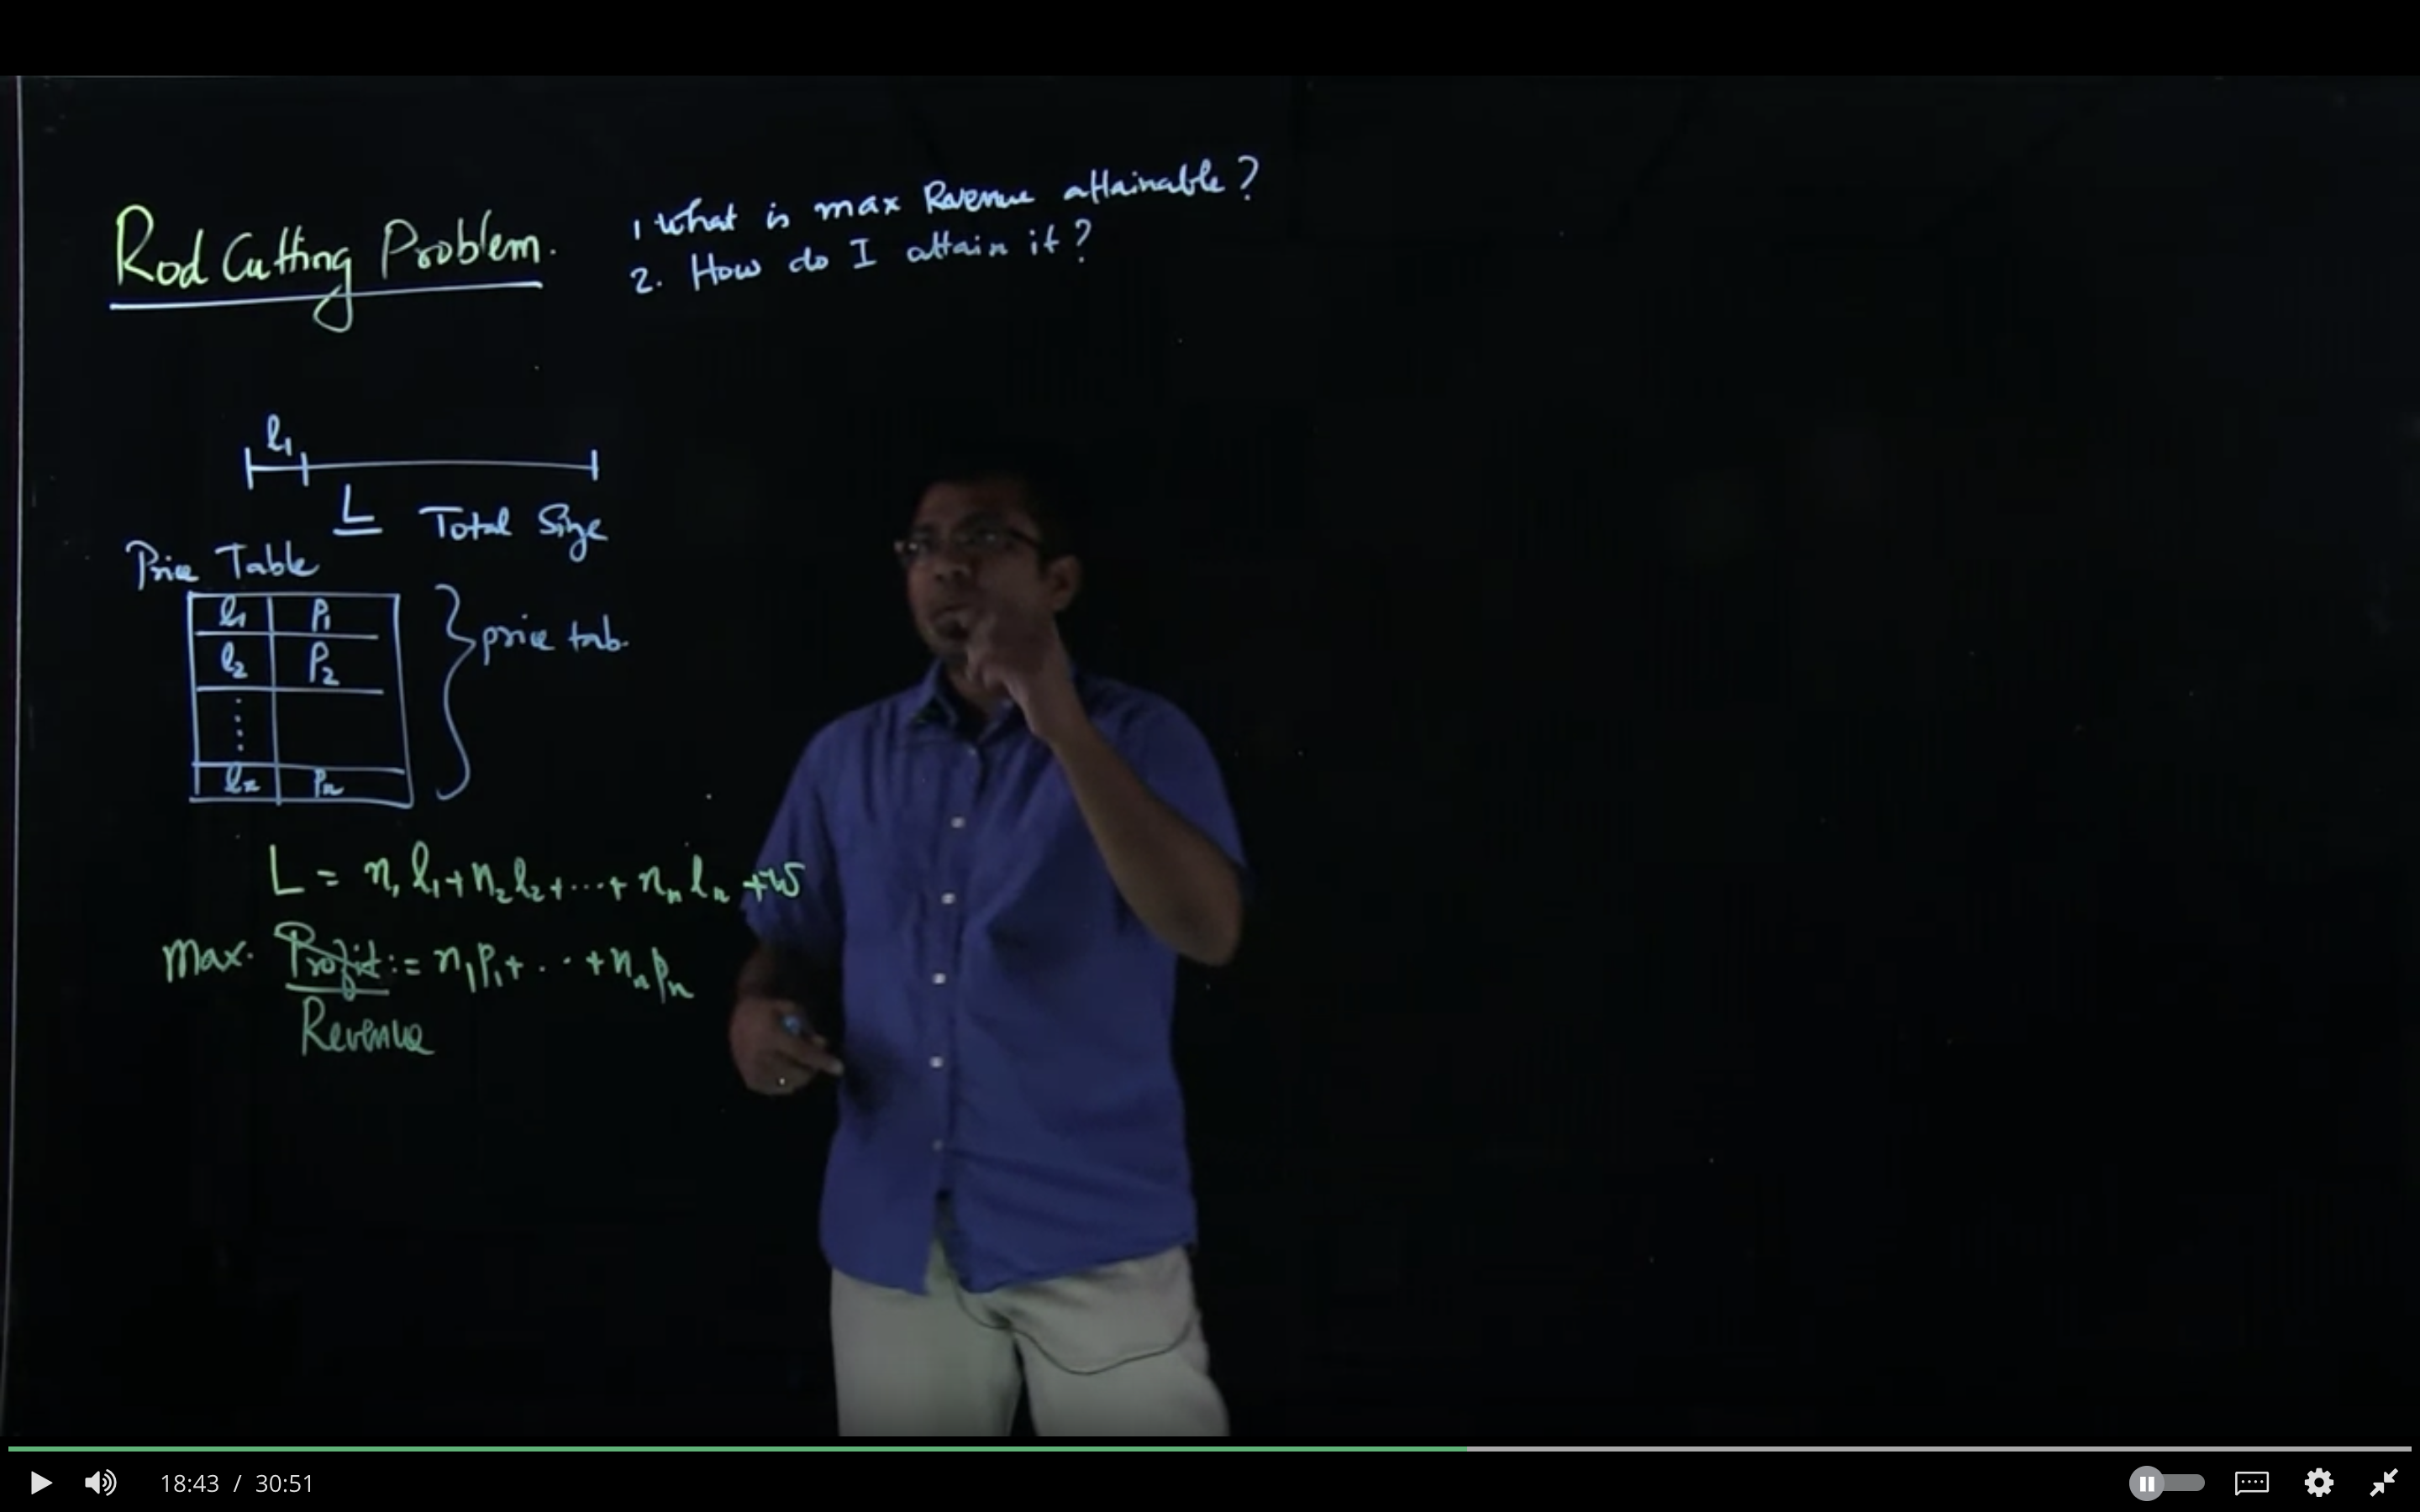 Rod Cutting Problem.
1 What is max Revenue attainable?
2. How do I attain it?
l1
L Total Size
Price Table
l1 P1
l2 P2
ln Pn
price tab.
L = n1 l1 + n2 l2 + ... + nn ln + w
max. Profit := n1 p1 + ... + nn pn
Revenue
18:43 / 30:51